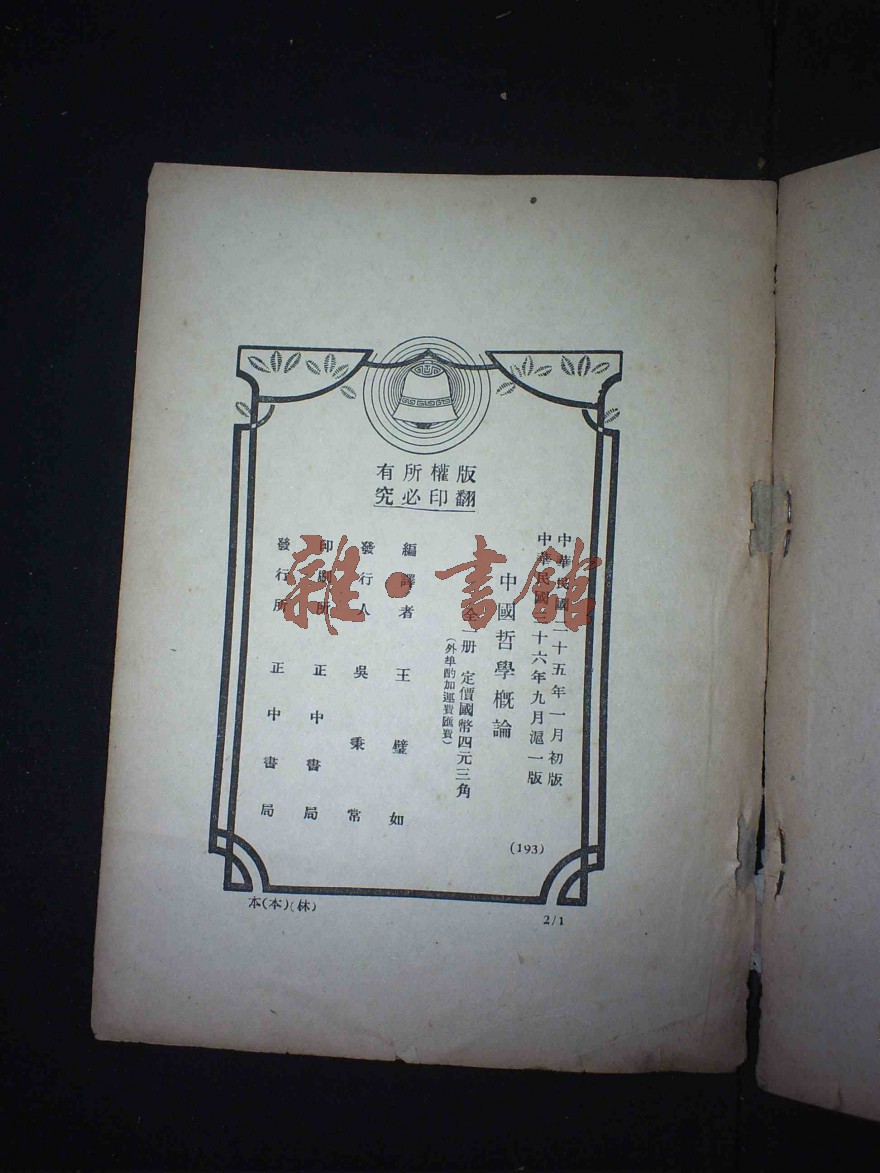 版權所有
翻印必究
中華民國二十五年一月初版
中華民國三十六年九月滬一版
中國哲學概論
全一册 定價國幣四元三角
(外埠酌加運費匯費)
編譯者 王璧如
發行人 吳秉常
印刷所 正中書局
發行所 正中書局
(193)
本(本)(林)
2/1
雜·書館